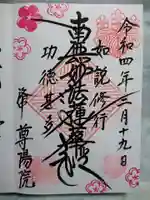 令和四年三月十九日
如説修行
南無妙法蓮華経
功徳甚多
尊陽院